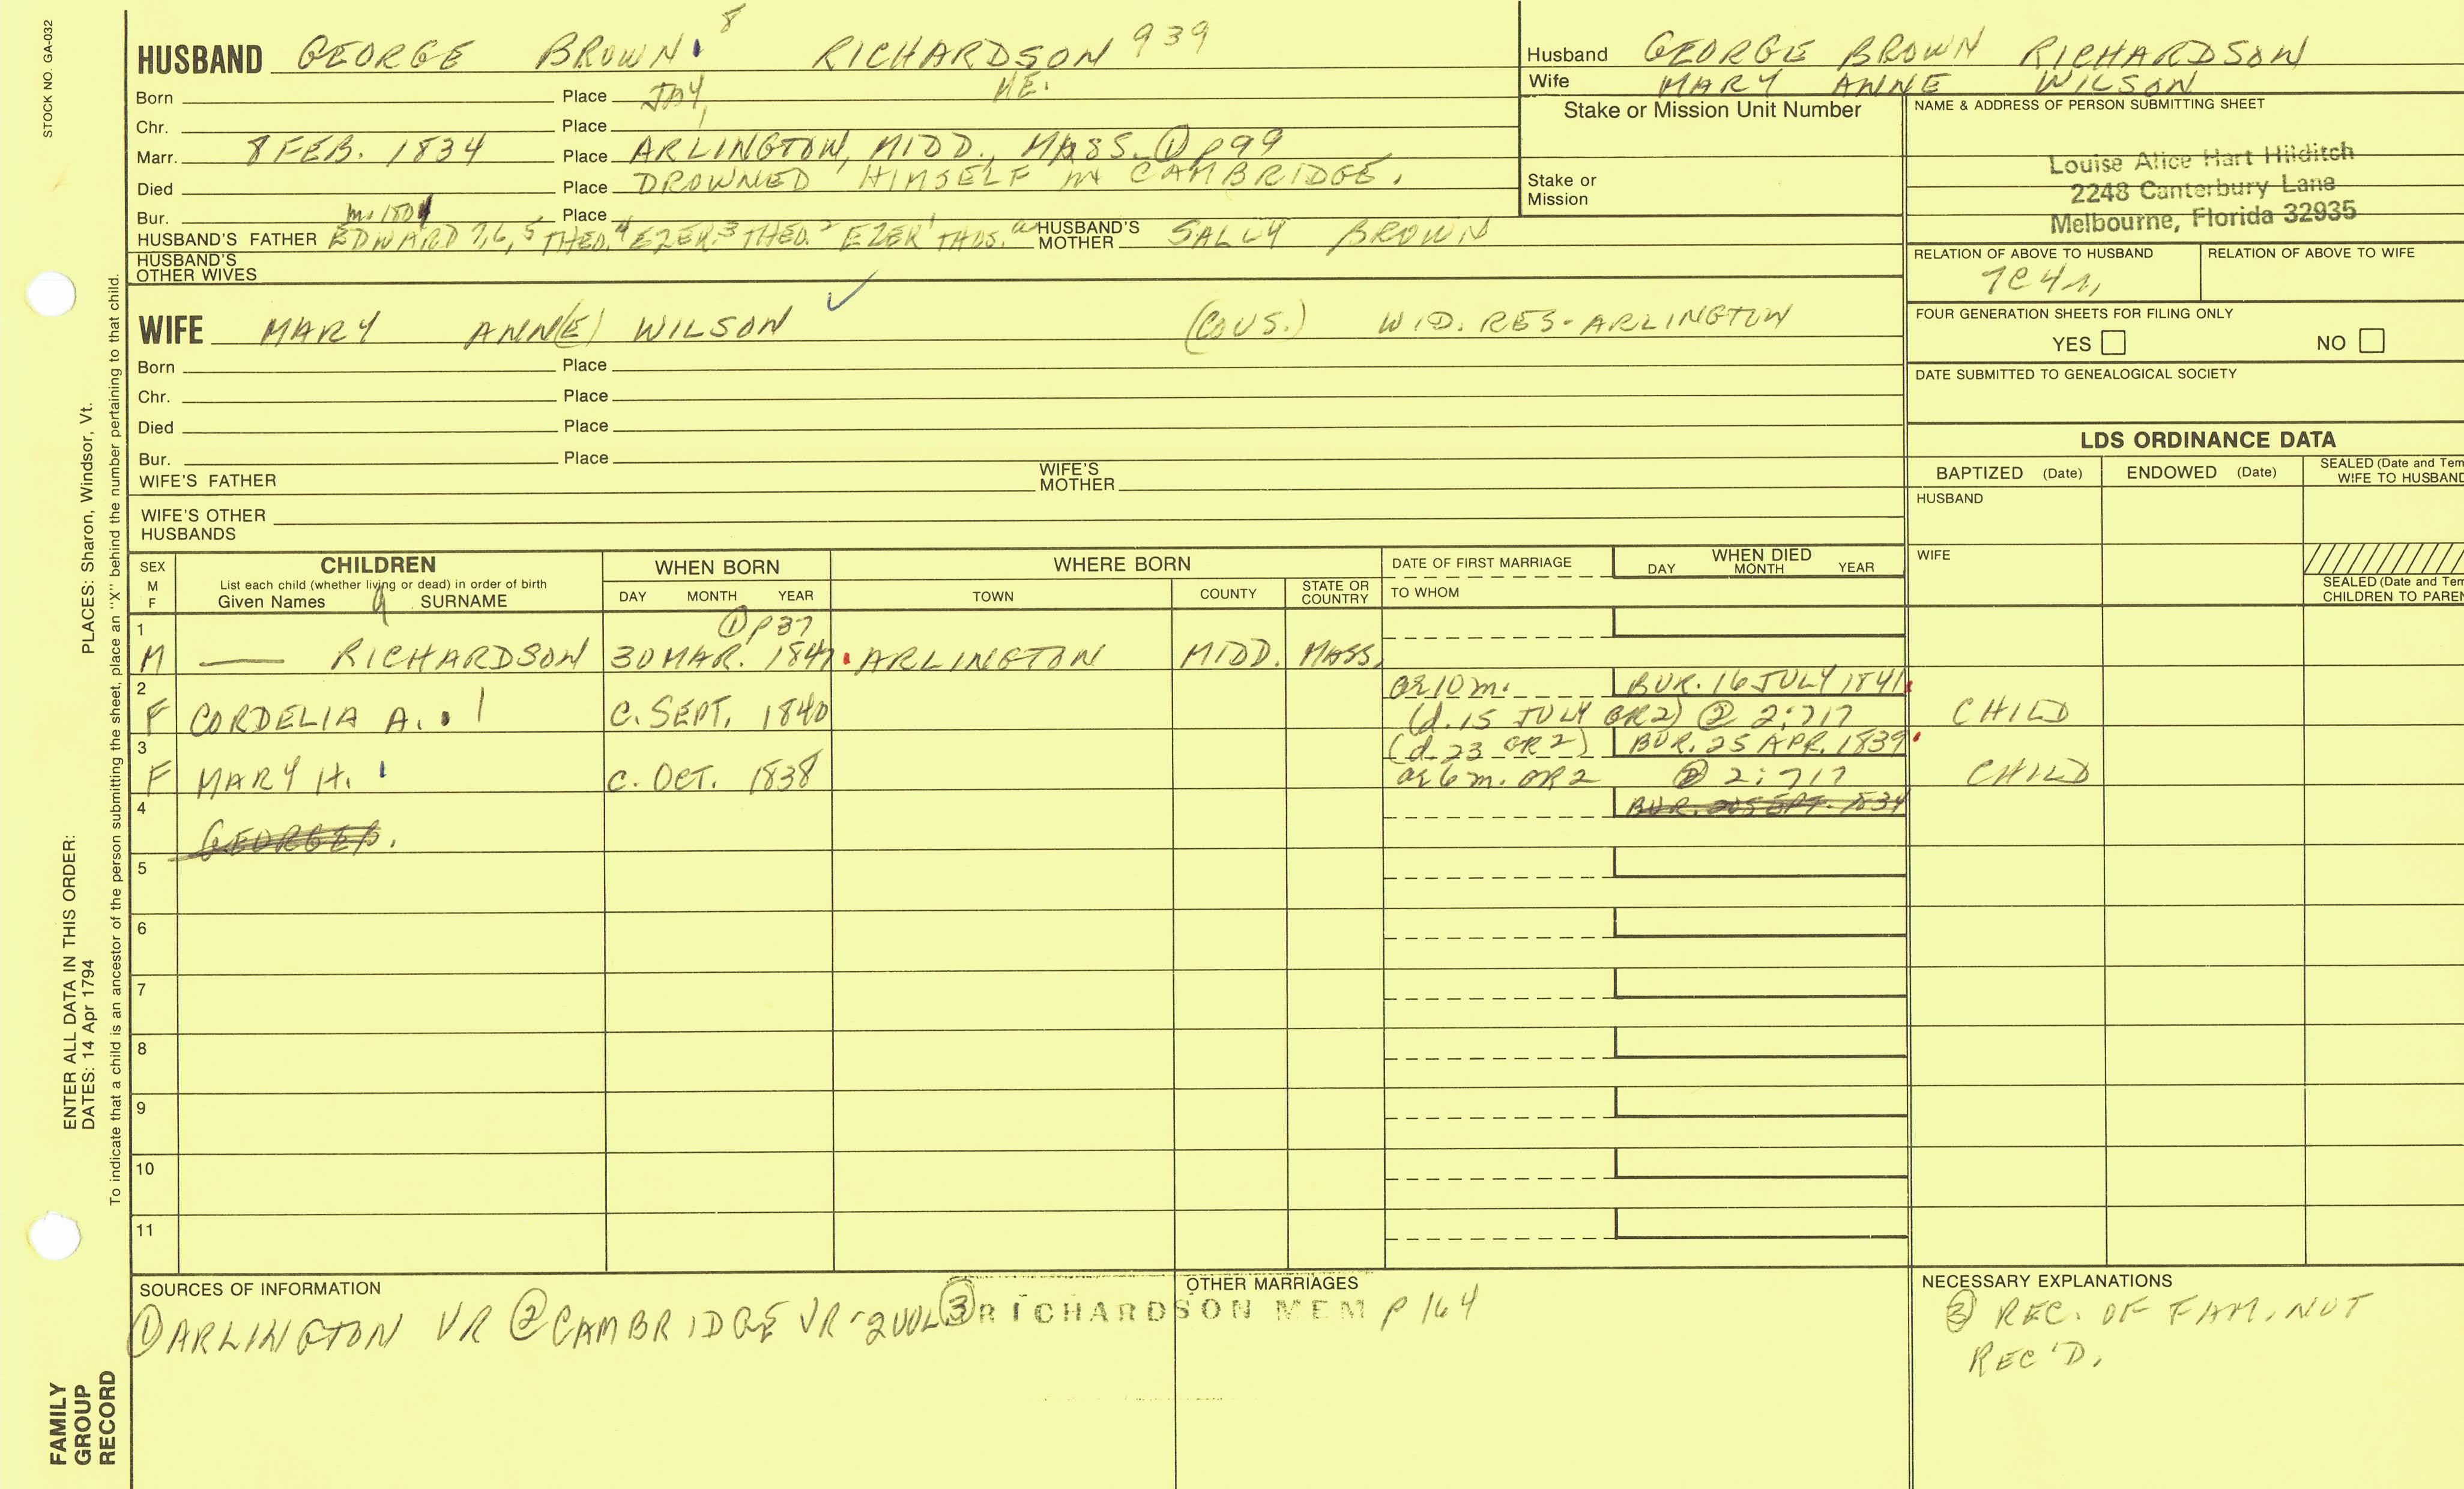 STOCK NO. GA-032
HUSBAND GEORGE BROWN 8 RICHARDSON 939
Born Place JAY, ME.
Chr. Place
Marr. 8 FEB. 1834 Place ARLINGTON, MIDD., MASS. ① p99
Died Place DROWNED HIMSELF in CAMBRIDGE.
Bur. Place
HUSBAND'S FATHER EDWARD 7,6,5 THED. 4 EZER 3 THED. 2 EZER 1 THOS. HUSBAND'S MOTHER SALLY BROWN
HUSBAND'S OTHER WIVES
WIFE MARY ANN(E) WILSON (COUS.) WID. RES-ARLINGTON
Born Place
Chr. Place
Died Place
Bur. Place
WIFE'S FATHER WIFE'S MOTHER
WIFE'S OTHER HUSBANDS
Husband GEORGE BROWN RICHARDSON
Wife MARY ANNE WILSON
Stake or Mission Unit Number
Stake or Mission
NAME & ADDRESS OF PERSON SUBMITTING SHEET
Louise Alice Hart Hilditch
2248 Canterbury Lane
Melbourne, Florida 32935
RELATION OF ABOVE TO HUSBAND RELATION OF ABOVE TO WIFE
7C4r,
FOUR GENERATION SHEETS FOR FILING ONLY
YES NO
DATE SUBMITTED TO GENEALOGICAL SOCIETY
LDS ORDINANCE DATA
BAPTIZED (Date) ENDOWED (Date) SEALED (Date and Tem
WIFE TO HUSBAND
HUSBAND
WIFE
SEALED (Date and Tem
CHILDREN TO PAREN
SEX M F
CHILDREN
List each child (whether living or dead) in order of birth
Given Names 9 SURNAME
WHEN BORN
DAY MONTH YEAR
WHERE BORN
TOWN COUNTY STATE OR COUNTRY
DATE OF FIRST MARRIAGE
TO WHOM
WHEN DIED
DAY MONTH YEAR
1 ① p37
M — RICHARDSON 30 MAR. 1847 ARLINGTON MIDD. MASS.
2 ae 10 m. BUR. 16 JULY 1841
F CORDELIA A. C. SEPT. 1840 (d. 15 JULY GR2) ② 2:717 CHILD
3 (d. 23 GR2) BUR. 25 APR. 1839
F MARY H. C. OCT. 1838 ae 6 m. GR2 ② 2:717 CHILD
4
GEORGE B.
5
6
7
8
9
10
11
SOURCES OF INFORMATION
① ARLINGTON VR ② CAMBRIDGE VR-2VOL ③ RICHARDSON MEM p 164
OTHER MARRIAGES
NECESSARY EXPLANATIONS
③ REC. OF FAM. NOT
REC'D.
PLACES: Sharon, Windsor, Vt.
ENTER ALL DATA IN THIS ORDER:
DATES: 14 Apr 1794
To indicate that a child is an ancestor of the person submitting the sheet, place an "X" behind the number pertaining to that child.
FAMILY
GROUP
RECORD